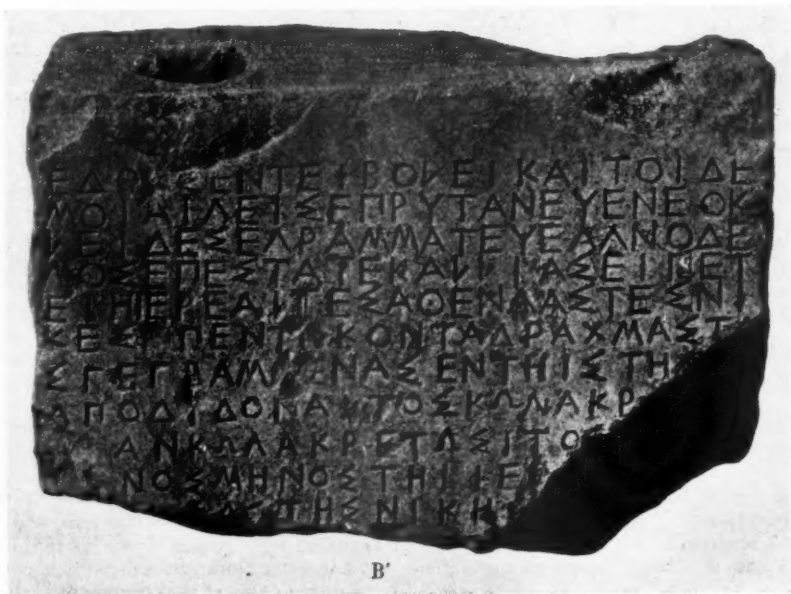 ΕΔΟΧΣΕΝΤΕΙΒΟΛΕΙΚΑΙΤΟΙΔΕ
ΜΟΙΑΙΓΕΙΣΕΠΡΥΤΑΝΕΥΕΝΕΟΚ
ΛΕΙΔΕΣΕΓΡΑΜΜΑΤΕΥΕΑΓΝΟΔΕ
ΜΟΣΕΠΕΣΤΑΤΕΚΑΛΛΙΑΣΕΙΠΕΤ
ΕΙΗΙΕΡΕΑΙΤΕΣΑΘΕΝΑΑΣΤΕΣΝΙ
ΚΕΣΠΕΝΤΗΚΟΝΤΑΔΡΑΧΜΑΣΤ
ΣΓΕΓΡΑΜΜΕΝΑΣΕΝΤΗΙΣΤΗ
ΑΠΟΔΙΔΟΝΑΙΤΟΣΚΩΛΑΚΡ
ΑΝΚΩΛΑΚΡΕΤΩΣΙΤΟ
ΝΟΣΜΗΝΟΣΤΗΙΙΕ
ΤΗΣΝΙΚΗ
B'